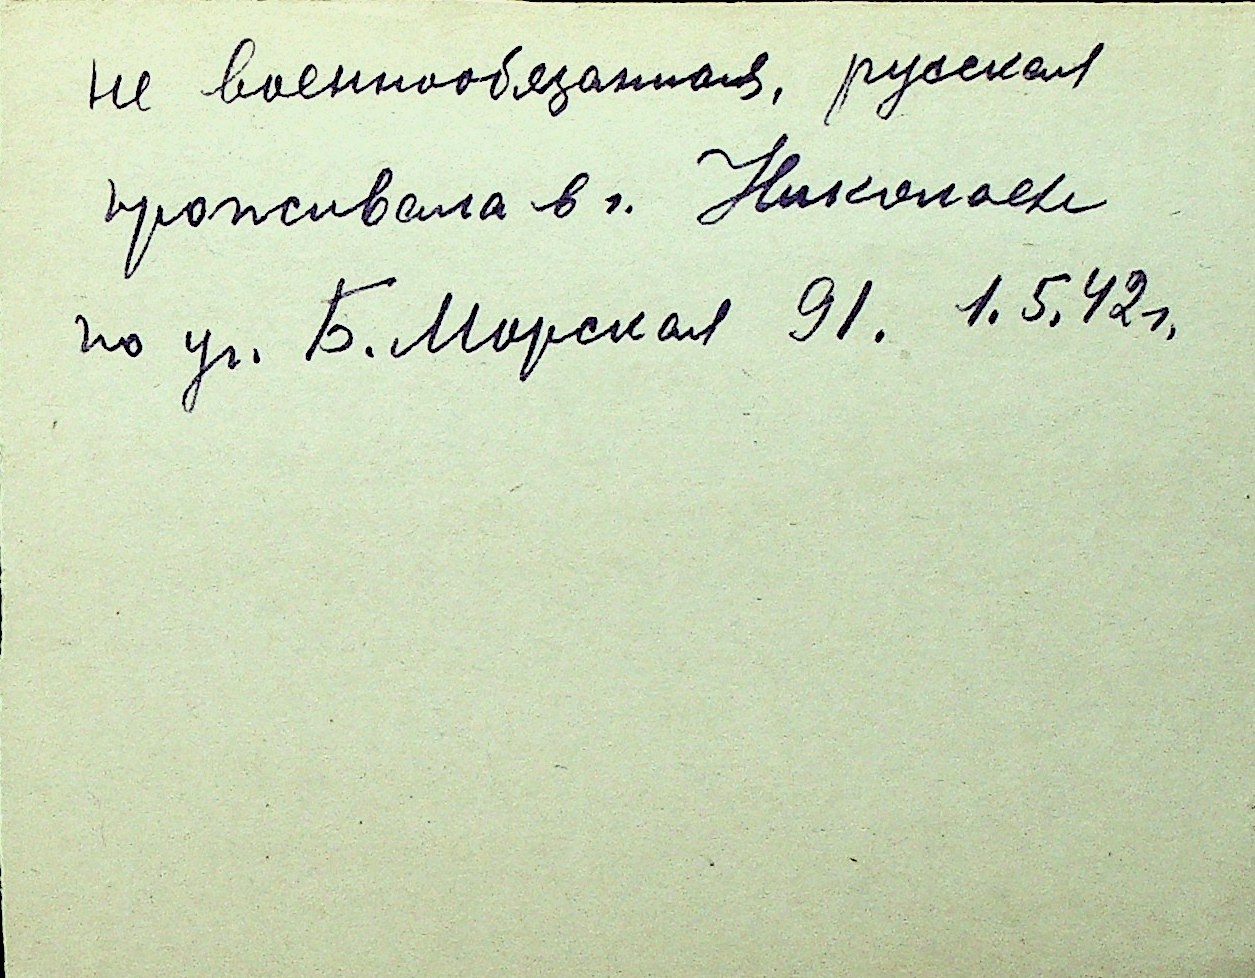 не военнообязанная, русская
проживала в г. Николаеве
по ул. Б. Морская 91. 1.5.42 г.